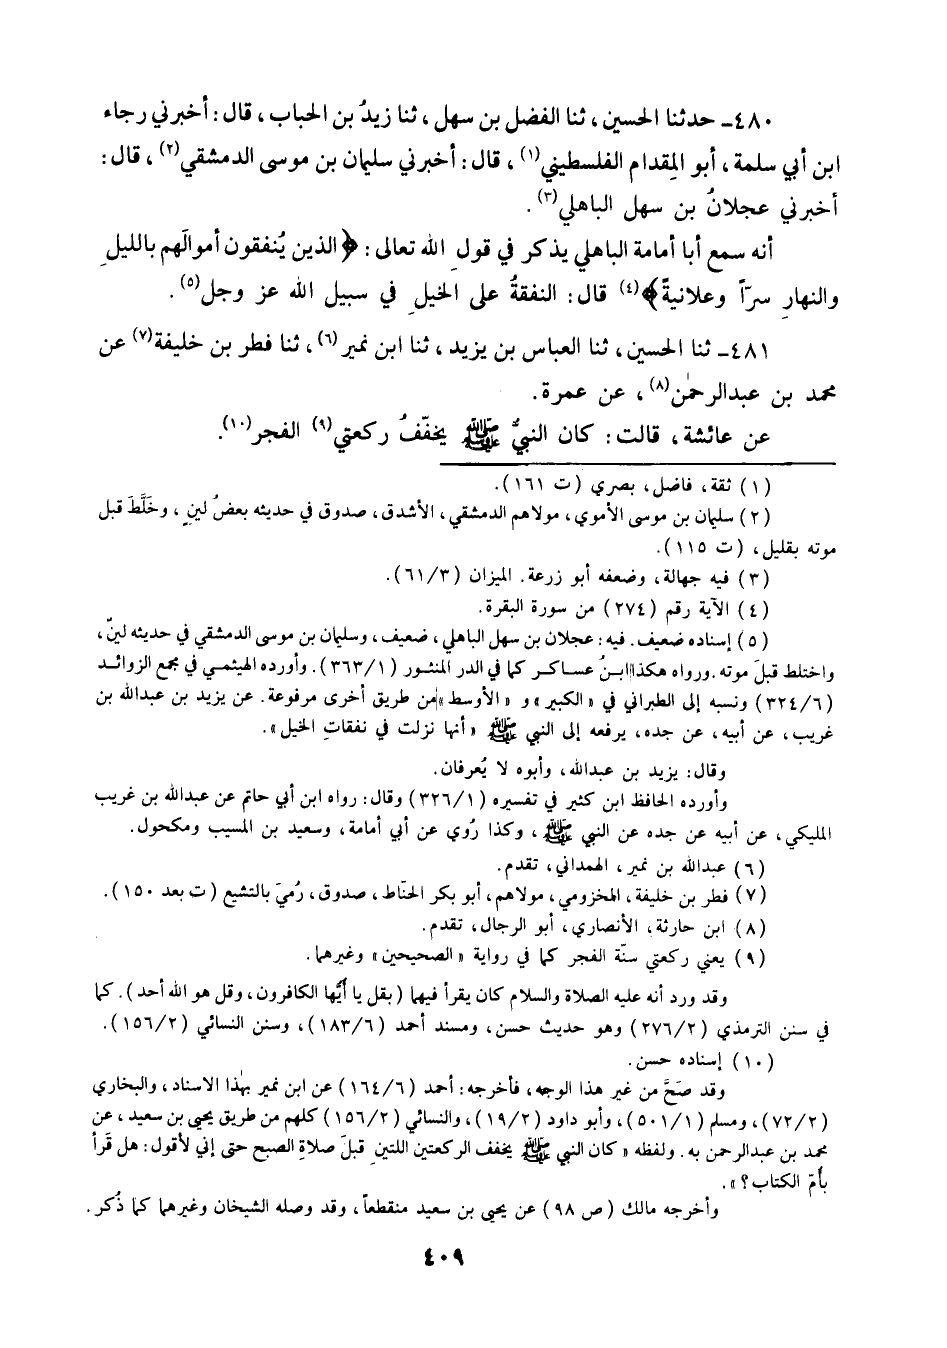 ٤٨٠ـ حدثنا الحسين، ثنا الفضل بن سهل، ثنا زيدُ بن الحباب، قال: أخبرني رجاء
ابن أبي سلمة، أبو المِقدام الفلسطيني(١)، قال: أخبرني سليمان بن موسى الدمشقي(٢)، قال:
أخبرني عجلانُ بن سهل الباهلي(٣).
أنه سمع أبا أمامة الباهلي يذكر في قولِ الله تعالى: ﴿الذين يُنفقون أموالَهم بالليلِ
والنهارِ سرّاً وعلانيةً﴾(٤) قال: النفقةُ على الخيلِ في سبيل الله عز وجل(٥).
٤٨١ـ ثنا الحسين، ثنا العباس بن يزيد، ثنا ابن نمير(٦)، ثنا فطر بن خليفة(٧) عن
محمد بن عبدالرحمٰن(٨)، عن عمرة.
عن عائشة، قالت: كان النبيُّ ﷺ يخفّفُ ركعتي(٩) الفجر(١٠).
(١) ثقة، فاضل، بصري (ت ١٦١).
(٢) سليمان بن موسى الأموي، مولاهم الدمشقي، الأشدق، صدوق في حديثه بعضُ لينٍ، وخَلَّطَ قبل
موته بقليل، (ت ١١٥).
(٣) فيه جهالة، وضعفه أبو زرعة. الميزان (٦١/٣).
(٤) الآية رقم (٢٧٤) من سورة البقرة.
(٥) إسناده ضعيف. فيه: عجلان بن سهل الباهلي، ضعيف، وسليمان بن موسى الدمشقي في حديثه لينّ،
واختلط قبلَ موته. ورواه هكذا ابنُ عساكر كما في الدر المنثور (٣٦٣/١). وأورده الهيثمي في مجمع الزوائد
(٣٢٤/٦) ونسبه إلى الطبراني في «الكبير» و «الأوسط» من طريق أخرى مرفوعة. عن يزيد بن عبدالله بن
غريب، عن أبيه، عن جده، يرفعه إلى النبي ﷺ «أنها نزلت في نفقاتِ الخيل».
وقال: يزيد بن عبدالله، وأبوه لا يُعرفان.
وأورده الحافظ ابن كثير في تفسيره (٣٢٦/١) وقال: رواه ابن أبي حاتم عن عبدالله بن غريب
المليكي، عن أبيه عن جده عن النبي ﷺ، وكذا رُوي عن أبي أمامة، وسعيد بن المسيب ومكحول.
(٦) عبدالله بن نمير، الهمداني، تقدم.
(٧) فطر بن خليفة، المخزومي، مولاهم، أبو بكر الحنّاط، صدوق، رُميَ بالتشيع (ت بعد ١٥٠).
(٨) ابن حارثة، الأنصاري، أبو الرجال، تقدم.
(٩) يعني ركعتي سنّة الفجر كما في رواية «الصحيحين» وغيرهما.
وقد ورد أنه عليه الصلاة والسلام كان يقرأ فيهما (بقل يا أيُّها الكافرون، وقل هو الله أحد). كما
في سنن الترمذي (٢٧٦/٢) وهو حديث حسن، ومسند أحمد (١٨٣/٦)، وسنن النسائي (١٥٦/٢).
(١٠) إسناده حسن.
وقد صَحَّ من غير هذا الوجه، فأخرجه: أحمد (١٦٤/٦) عن ابن نمير بهٰذا الاسناد، والبخاري
(٧٢/٢)، ومسلم (٥٠١/١)، وأبو داود (١٩/٢)، والنسائي (١٥٦/٢) كلهم من طريق يحيى بن سعيد، عن
محمد بن عبدالرحمن به. ولفظه «كان النبي ﷺ يخفف الركعتين اللتينِ قبلَ صلاةِ الصبح حتى إني لأقول: هل قَرأ
بأُمّ الكتاب؟».
وأخرجه مالك (ص ٩٨) عن يحيى بن سعيد منقطعاً، وقد وصله الشيخان وغيرهما كما ذُكر.
٤٠٩